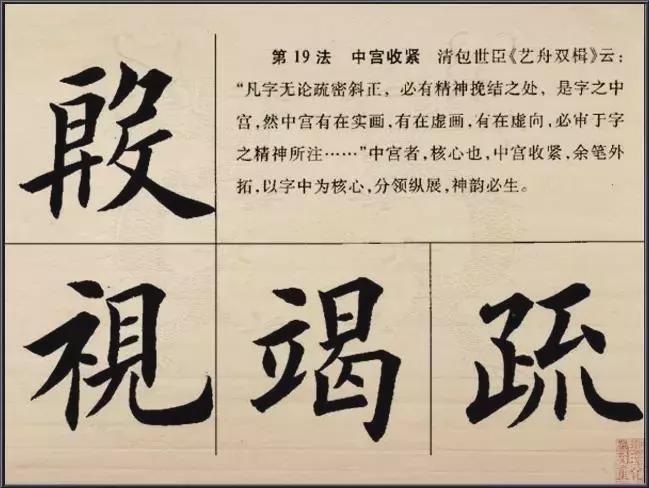 第19法 中宫收紧 清包世臣《艺舟双楫》云：
“凡字无论疏密斜正，必有精神挽结之处，是字之中
宫，然中宫有在实画，有在虚画，有在虚向，必审于字
之精神所注……”中宫者，核心也，中宫收紧，余笔外
拓，以字中为核心，分领纵展，神韵必生。
視 竭 疏